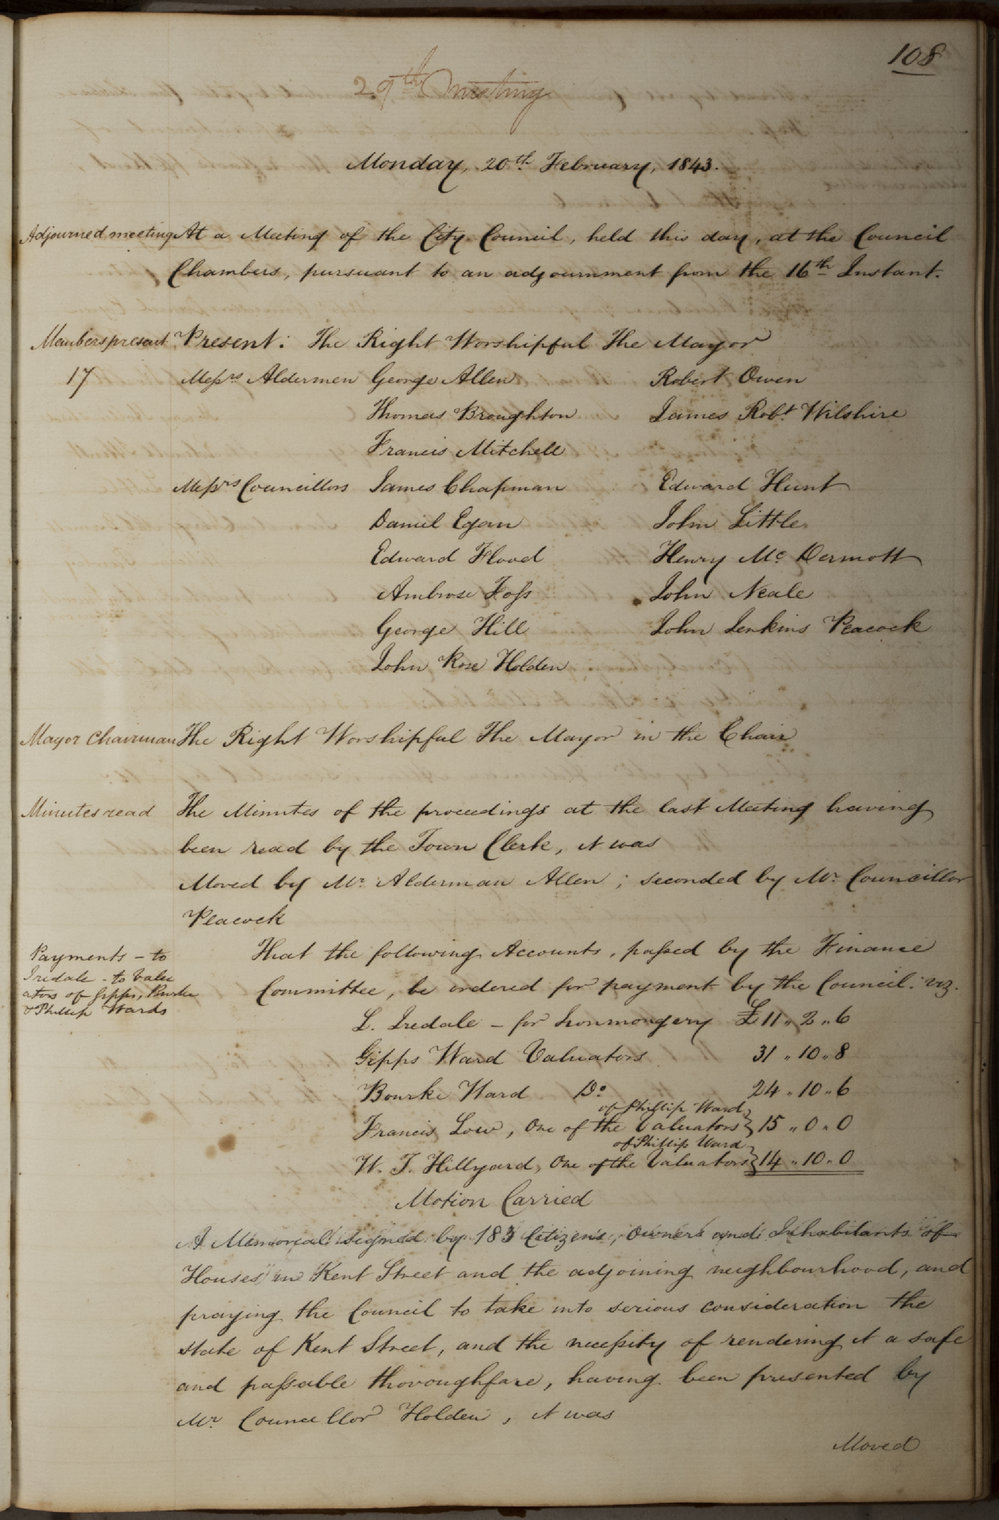 108
29th Meeting
Monday, 20th February, 1843.
Adjourned meeting At a Meeting of the City Council, held this day, at the Council
Chambers, pursuant to an adjournment from the 16th Instant.
Members present Present: The Right Worshipful The Mayor
17 Messrs Aldermen George Allen Robert Owen
Thomas Broughton James Robt Wilshire
Francis Mitchell
Messrs Councillors James Chapman Edward Hunt
Daniel Egan John Little
Edward Flood Henry Mc Dermott
Ambrose Foss John Neale
George Hill John Jenkins Peacock
John Rose Holden
Mayor Chairman The Right Worshipful The Mayor in the Chair
Minutes read The Minutes of the proceedings at the last Meeting having
been read by the Town Clerk, it was
Moved by Mr. Alderman Allen; seconded by Mr. Councillor
Peacock
Payments - to
Iredale - to Valu
ators of Gipps, Bourke
& Phillip Wards
That the following Accounts, passed by the Finance
Committee, be ordered for payment by the Council: viz.
L. Iredale - for Ironmongery £11 " 2 " 6
Gipps Ward Valuators 31 " 10 " 8
Bourke Ward Do. 24 " 10 " 6
of Phillip Ward
Francis Low, One of the Valuators } 15 " 0 " 0
of Phillip Ward
W. T. Hillyard, One of the Valuators } 14 " 10 " 0
Motion Carried
A Memorial signed by 183 Citizens, Owners and Inhabitants of
Houses in Kent Street and the adjoining neighbourhood, and
praying the Council to take into serious consideration the
state of Kent Street, and the necessity of rendering it a safe
and passable thoroughfare, having been presented by
Mr. Councillor Holden, it was
Moved